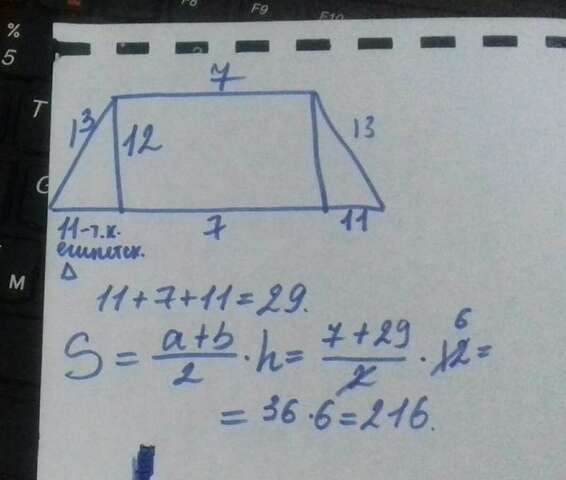 %
5
F8
F9
F10
T
G
M
7
13
12
13
11-т.к.
египетск.
Δ
7
11
11+7+11=29.
S = a+b/2 · h = 7+29/2 · 12 6 =
= 36·6=216.